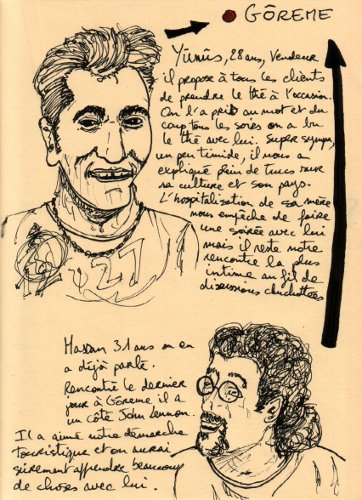 GÖREME
Yünüs, 28 ans, Vendeur
il propose à tous les clients
de prendre le thé à l'occasion.
On l'a pris au mot et du
coup tous les soirs on a bu
le thé avec lui. Super sympa,
un peu timide, il nous a
expliqué plein de trucs sur
sa culture et son pays.
L'hospitalisation de sa mère
nous empêche de faire
une soirée avec lui
mais il reste notre
rencontre la plus
intime au fil de
discussions chuchotées
27
Hassan 31 ans on en
a déjà parlé.
Rencontré le dernier
jour à Göreme il a
un côté John Lennon.
Il a aimé notre démarche
touristique et on aurait
sûrement apprendre beaucoup
de choses avec lui.